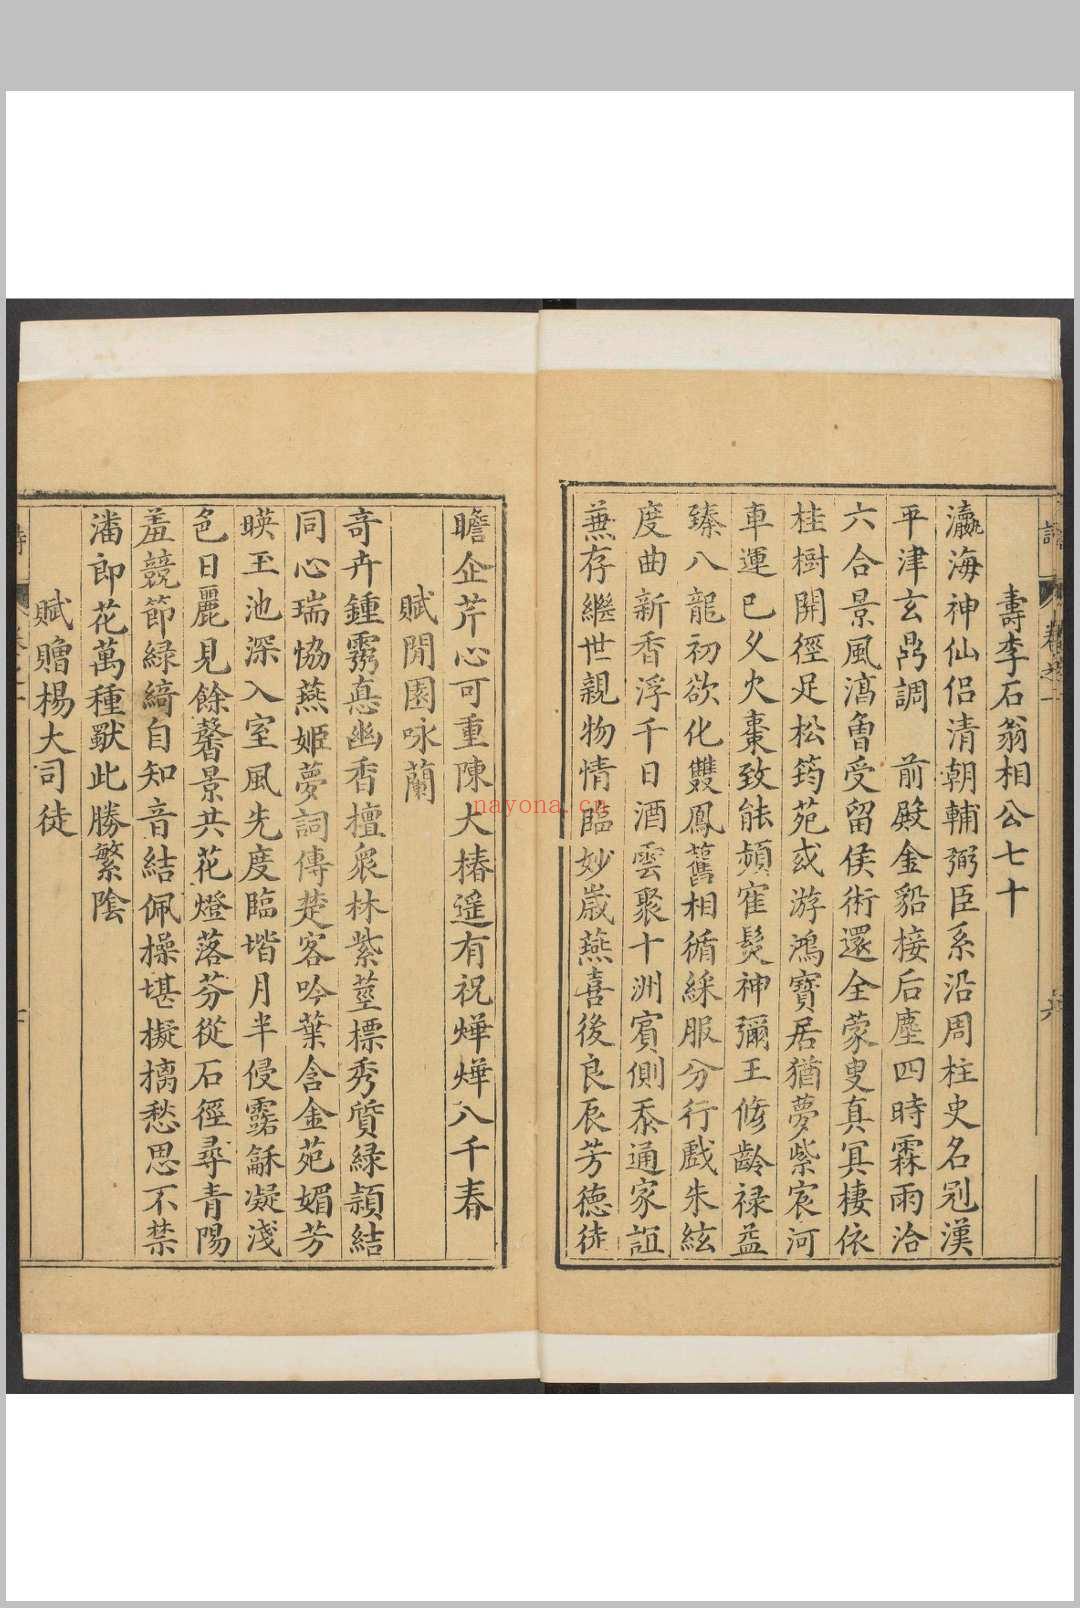 壽李石翁相公七十
瀛海神仙侣清朝輔弼臣系沿周柱史名冠漢
平津玄鼎調 前殿金貂接后塵四時霖雨洽
六合景風淸曾受留侯術還全蒙叟真冥棲依
桂樹開徑足松筠苑或游鴻寶居猶夢紫宸河
車運巳久火棗致能頻寉髮神彌王脩齡禄益
臻八龍初欲化雙鳳舊相循綵服分行戲朱絃
度曲新香浮千日酒雲聚十洲賓側忝通家誼
蕪存繼世親物情臨妙歲燕喜後良辰芳德徒
瞻企芹心可重陳大椿遥有祝燁燁八千春
賦閒園咏蘭
奇卉鍾靈悳幽香擅衆林紫莖標秀質緑頴結
同心瑞協燕姬夢詞傳楚客吟葉含金苑媚芳
暎玉池深入室風先度臨堦月半侵露龢凝淺
色日麗見餘馨景共花燈落芬從石徑尋青陽
羞競節緑綺自知音結佩操堪擬摛愁思不禁
潘郎花萬種獸此勝繁陰
賦贈楊大司徒
nayona.cn